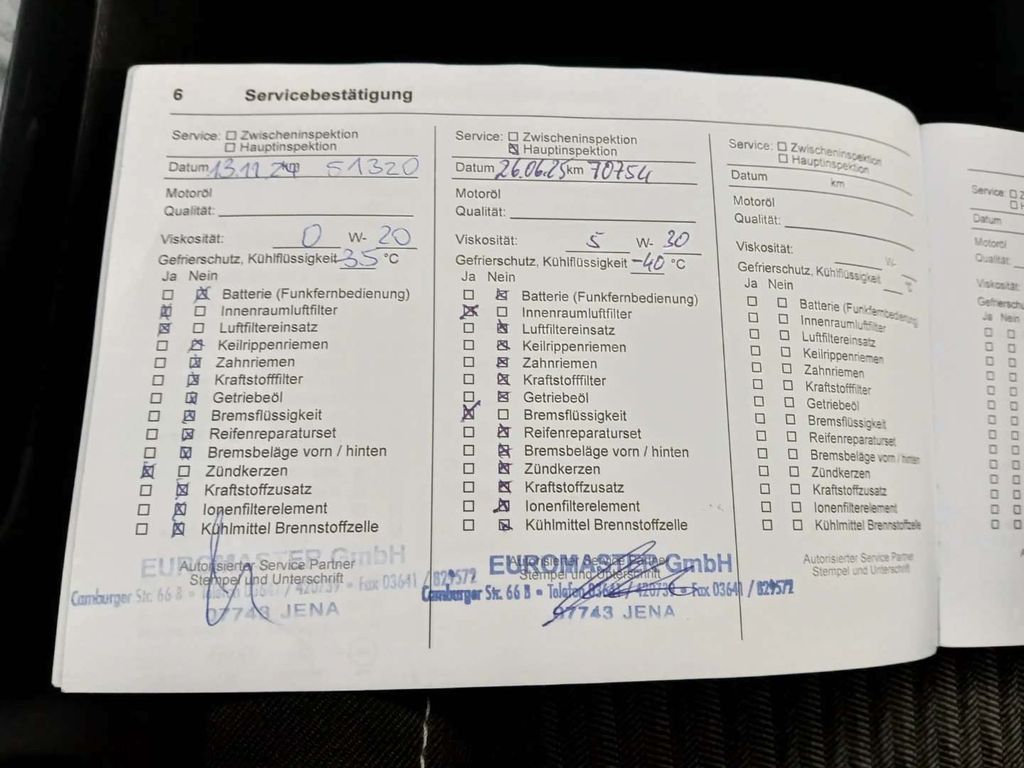 6 Servicebestätigung
Service: ☐ Zwischeninspektion
☐ Hauptinspektion
Datum 13.11.24 km 51320
Motoröl
Qualität:
Viskosität: 0 W- 20
Gefrierschutz, Kühlflüssigkeit -35 °C
Ja Nein
☐ ☒ Batterie (Funkfernbedienung)
☒ ☐ Innenraumluftfilter
☒ ☐ Luftfiltereinsatz
☐ ☒ Keilrippenriemen
☐ ☒ Zahnriemen
☐ ☒ Kraftstofffilter
☐ ☒ Getriebeöl
☐ ☒ Bremsflüssigkeit
☐ ☒ Reifenreparaturset
☐ ☒ Bremsbeläge vorn / hinten
☒ ☐ Zündkerzen
☐ ☒ Kraftstoffzusatz
☐ ☒ Ionenfilterelement
☐ ☒ Kühlmittel Brennstoffzelle
EUROMASTER GmbH
Autorisierter Service Partner
Stempel und Unterschrift
Camburger Str. 66 B • Telefon 03641 / 420739 • Fax 03641 / 829572
07743 JENA
Service: ☐ Zwischeninspektion
☒ Hauptinspektion
Datum 26.06.25 km 70754
Motoröl
Qualität:
Viskosität: 5 W- 30
Gefrierschutz, Kühlflüssigkeit -40 °C
Ja Nein
☐ ☒ Batterie (Funkfernbedienung)
☒ ☐ Innenraumluftfilter
☐ ☒ Luftfiltereinsatz
☐ ☒ Keilrippenriemen
☐ ☒ Zahnriemen
☐ ☒ Kraftstofffilter
☐ ☒ Getriebeöl
☒ ☐ Bremsflüssigkeit
☐ ☒ Reifenreparaturset
☐ ☒ Bremsbeläge vorn / hinten
☐ ☒ Zündkerzen
☐ ☒ Kraftstoffzusatz
☐ ☒ Ionenfilterelement
☐ ☒ Kühlmittel Brennstoffzelle
EUROMASTER GmbH
Autorisierter Service Partner
Stempel und Unterschrift
Camburger Str. 66 B • Telefon 03641 / 420739 • Fax 03641 / 829572
07743 JENA
Service: ☐ Zwischeninspektion
☐ Hauptinspektion
Datum km
Motoröl
Qualität:
Viskosität: W-
Gefrierschutz, Kühlflüssigkeit °C
Ja Nein
☐ ☐ Batterie (Funkfernbedienung)
☐ ☐ Innenraumluftfilter
☐ ☐ Luftfiltereinsatz
☐ ☐ Keilrippenriemen
☐ ☐ Zahnriemen
☐ ☐ Kraftstofffilter
☐ ☐ Getriebeöl
☐ ☐ Bremsflüssigkeit
☐ ☐ Reifenreparaturset
☐ ☐ Bremsbeläge vorn / hinten
☐ ☐ Zündkerzen
☐ ☐ Kraftstoffzusatz
☐ ☐ Ionenfilterelement
☐ ☐ Kühlmittel Brennstoffzelle
Autorisierter Service Partner
Stempel und Unterschrift
Service: ☐
Datum
Motoröl
Qualität:
Viskosität:
Ja Nein